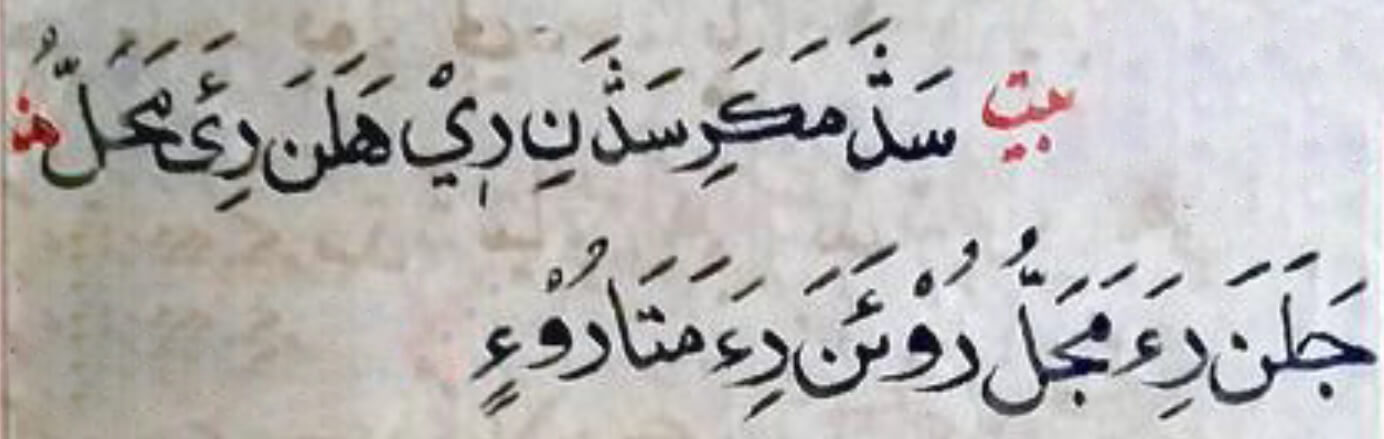 بيت سَڏَ مَڪَرِ سَڏَنِ رِيْ هَلَنَ رِئَ مَحَلُّ هُ
جَلَنَ رِءَ مَجَلُّ رُوْئَنَ رِءَ مَتَا رُوْءٍ